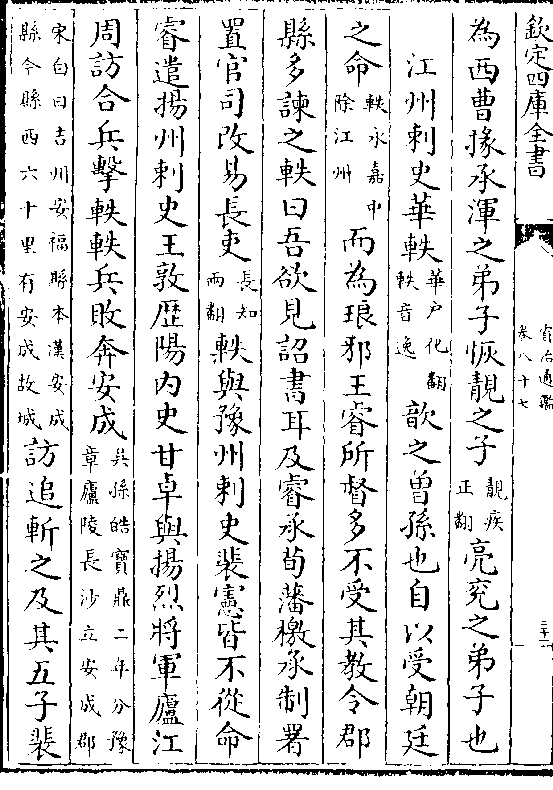 欽定四庫全書
資治通鑑
卷八十七
三十一
為西曹掾承渾之弟子恢靚之子靚疾正翻亮兖之弟子也
江州刺史華軼華戶化翻軼音逸歆之曾孫也自以受朝廷
之命軼永嘉中除江州而為琅邪王睿所督多不受其教令郡
縣多諫之軼曰吾欲見詔書耳及睿承荀藩檄承制署
置官司改易長吏長知兩翻軼與豫州刺史裴憲皆不從命
睿遣揚州刺史王敦歷陽內史甘卓與揚烈將軍廬江
周訪合兵擊軼軼兵敗奔安成吳孫皓寶鼎二年分豫章廬陵長沙立安成郡
宋白曰吉州安福縣本漢安成縣今縣西六十里有安成故城訪追斬之及其五子裴